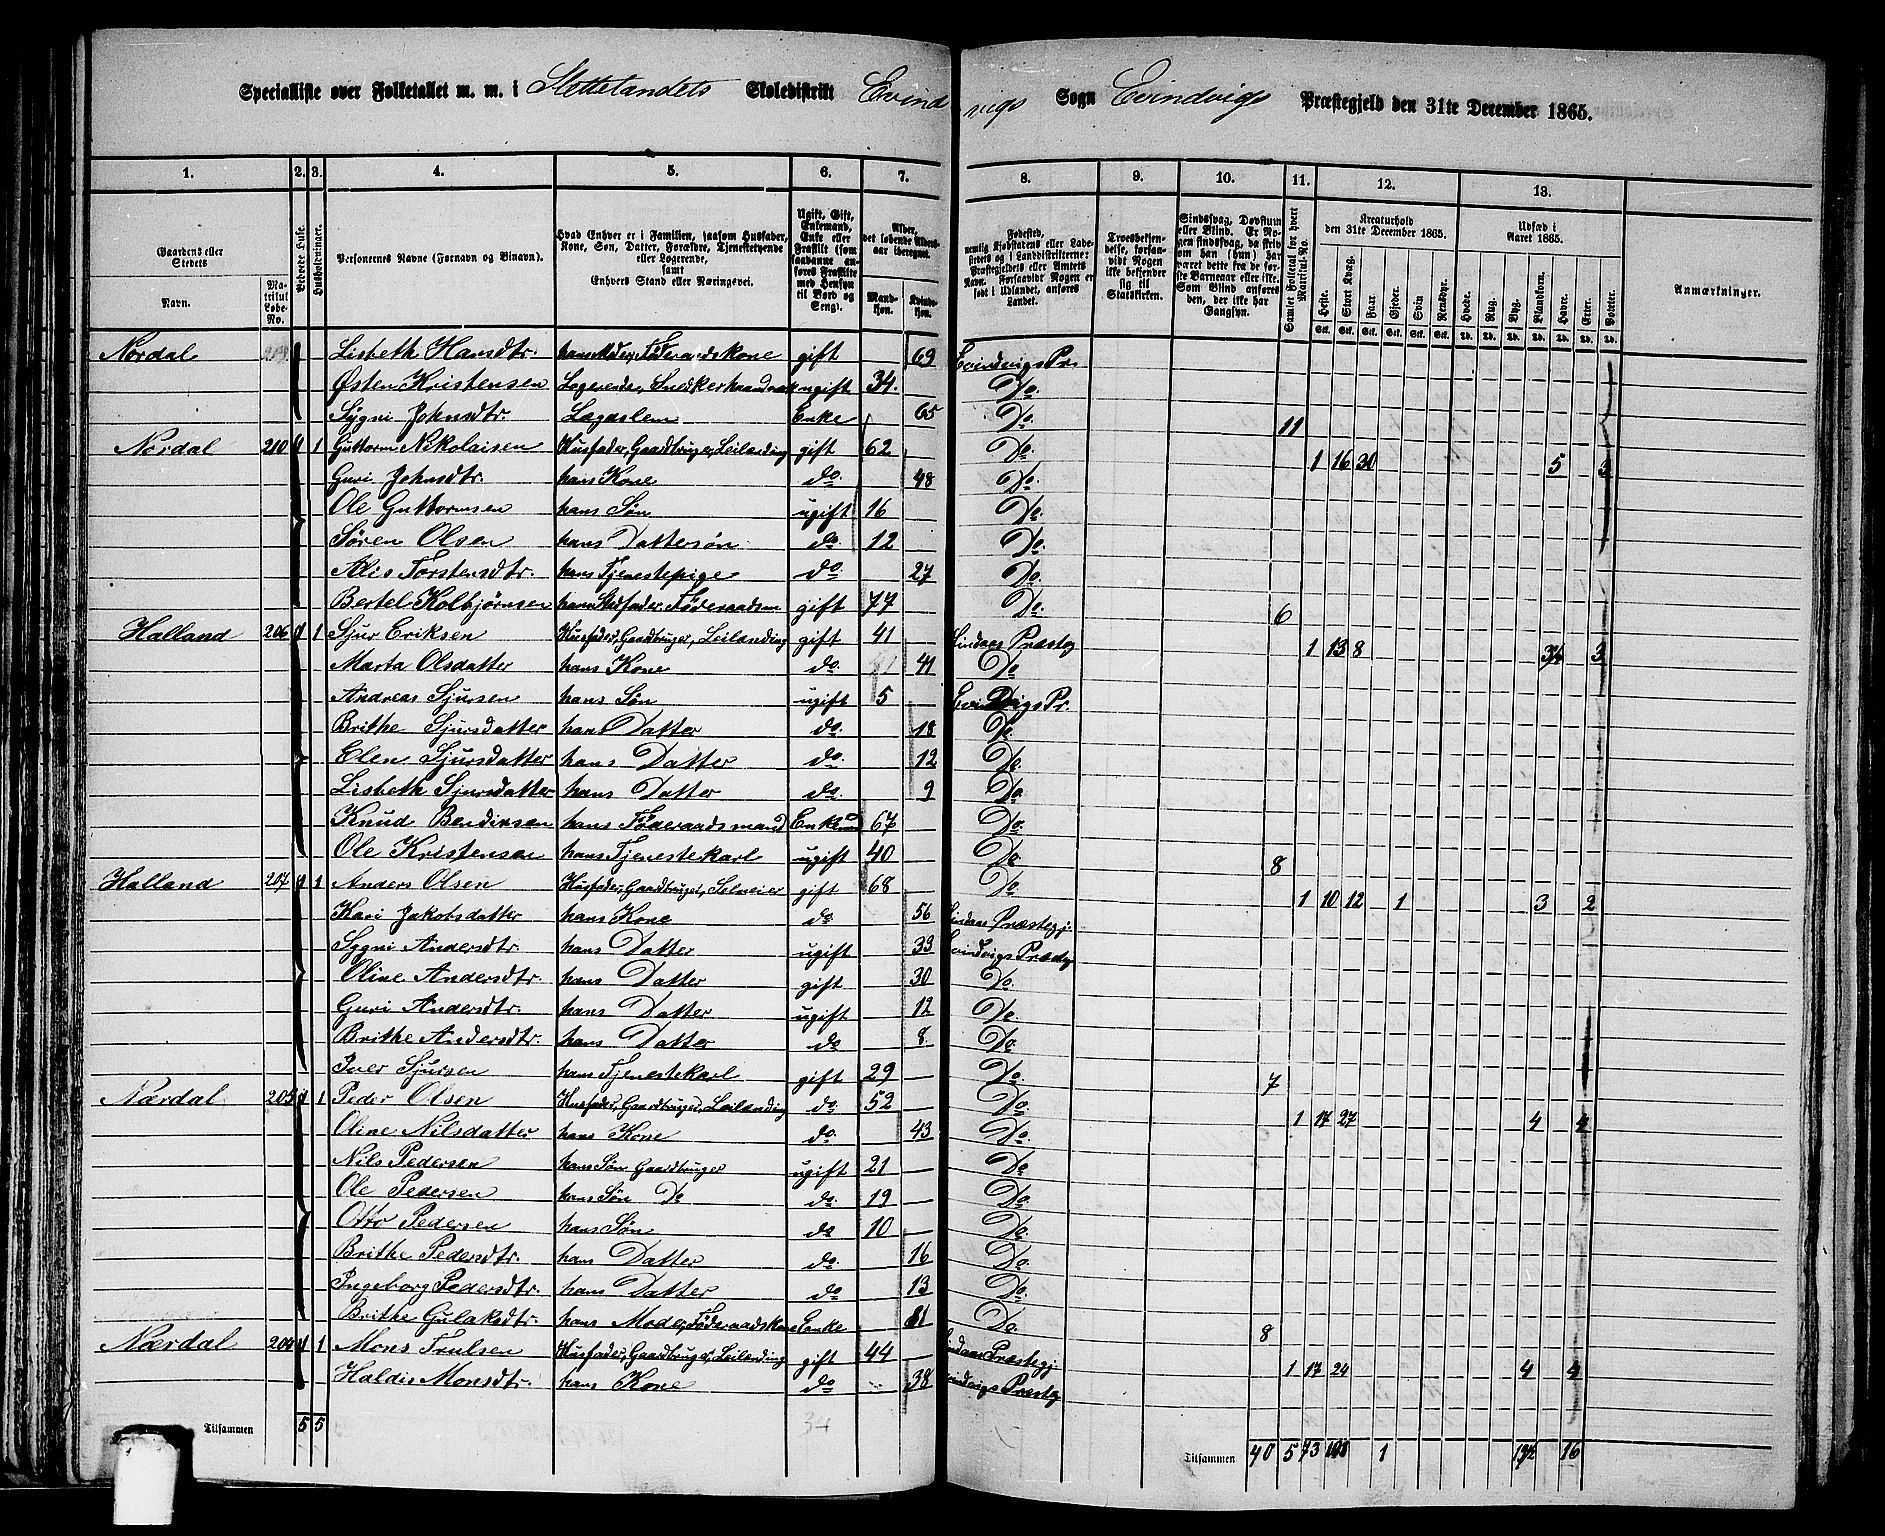 Specialliste over Folketallet m. m. i Slettelandets Skoledistrikt Evindvigs Sogn Evindvigs Præstegjeld den 31te December 1865.
1. 2. 3. 4. 5. 6. 7. 8. 9. 10. 11. 12. 13.
Gaardens eller Stedets Navn. Matrikul Løbe-No. Beboede Huse. Husholdninger. Personernes Navne (Fornavn og Binavn). Hvad Enhver er i Familien, saasom Husfader, Kone, Søn, Datter, Forældre, Tjenestetyende eller Logerende, samt Enhvers Stand eller Næringsvei. Ugift, Gift, Enkemand, Enke eller Fraskilt Alder, det løbende Aldersaar iberegnet. Mandkjøn. Kvindekjøn. Fødested, Troesbekjendelse, forsaavidt Nogen ikke bekjender sig til Statskirken. Samlet Folketal for hvert Matrikul-No. Kreaturhold den 31te December 1865. Udsæd i Aaret 1865. Anmærkninger.
Heste. Stort Kvæg. Faar. Gjeder. Svin Rensdyr. Hvede. Rug. Byg. Blandkorn. Havre. Erter. Poteter.
Nordal Lisbeth Hansdtr. hans Moder, Føderaadskone gift 69 Evindvigs Pr.
Østen Kristensen Logerende, Snedkerhaandværk ugift 34. Do.
Sygni Johnsdtr. Lægdslem Enke 65 Do. 11
Nordal 210 1 1 Guttorm Nikolaisen Husfader, Gaardbruger, Leilænding gift 62 Do. 1 16 20 5 3
Guri Johnsdtr. hans Kone do. 48 Do.
Ole Guttormsen hans Søn ugift 16 Do.
Søren Olsen hans Dattersøn do. 12 Do.
Alis Torstensdtr. hans Tjenestepige do. 27 Do.
Bertel Kolbjørnsen hans Stedfader, Føderaadsm gift 77 Do. 6
Halland 206 1 1 Sjur Eriksen Husfader, Gaardbruger, Leilænding gift 41 Lindaas Præstg 1 13 8 3½ 3
Marta Olsdatter hans Kone do. 41 Do
Andreas Sjursen hans Søn ugift 5 Evindvigs Pr.
Brithe Sjursdatter hans Datter do. 18 Do
Elen Sjursdatter hans Datter do. 12 Do
Lisbeth Sjursdatter hans Datter do. 9 Do
Knud Bendixsen hans Føderaadsmand Enkemd 67 Do.
Ole Kristensen hans Tjenestekarl ugift 40 Do 8
Halland 207 1 1 Anders Olsen Husfader, Gaardbruger, Selveier gift 68 Do 1 10 12 1 3 2
Kari Jakobsdatter hans Kone do 56 Lindaas Præstegj.
Sygni Andersdtr. hans Datter ugift 33 Evindvigs Præstg
Oline Andersdtr. hans Datter gift 30 Do.
Guri Andersdtr. hans Datter ugift 12 Do
Brithe Andersdtr. hans Datter do 8. Do.
Iver Sjursen hans Tjenestekarl gift 29 Do. 7
Nærdal 205 1 1 Peder Olsen Husfader, Gaardbruger, Leilænding do 52 Do. 1 17 27 4 4
Oline Nilsdatter hans Kone do. 43 Do.
Nils Pedersen hans Søn Gaardbruger ugift 21 Do
Ole Pedersen hans Søn Do do. 19 Do.
Otto Pedersen hans Søn do 10 Do.
Brithe Pedersdtr. hans Datter do. 16 Do.
Ingeborg Pedersdtr. hans Datter do 13 Do.
Brithe Gulaksdtr. hans Moder, Føderaadskone Enke 81 Do. 8
Nærdal 204 1 1 Mons Trulsen Husfader, Gaardbruger, Leilænding gift 44 Lindaas Præstegj 1 17 24 4 4
Haldis Monsdtr. hans Kone do 38 Evindvigs Præstg
Tilsammen 5 5 Tilsammen 40 5 73 1 16